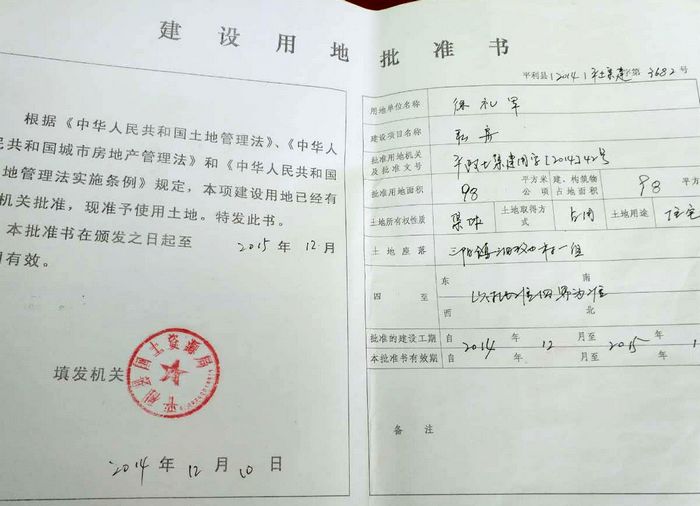 建设用地批准书
根据《中华人民共和国土地管理法》、《中华人
民共和国城市房地产管理法》和《中华人民共和国
地管理法实施条例》规定，本项建设用地已经有
机关批准，现准予使用土地。特发此书。
本批准书在颁发之日起至 2015 年 12 月
有效。
填发机关
平利县国土资源局
2014 年 12 月 10 日
平利县(2014)平土集建字第3682号
用地单位名称 徐礼军
建设项目名称 私房
批准用地机关及批准文号 平政土集建用字[2014]42号
批准用地面积 98 平方米 公顷 建、构筑物占地面积 98 平方
土地所有权性质 集体 土地取得方式 占用 土地用途 住宅
土地座落 三阳镇 村一组
四至 东 南 西 北 以批准四界为准
批准的建设工期 自 2014 年 12 月至 2015 年 1
本批准书有效期 自 年 月至 年
备注